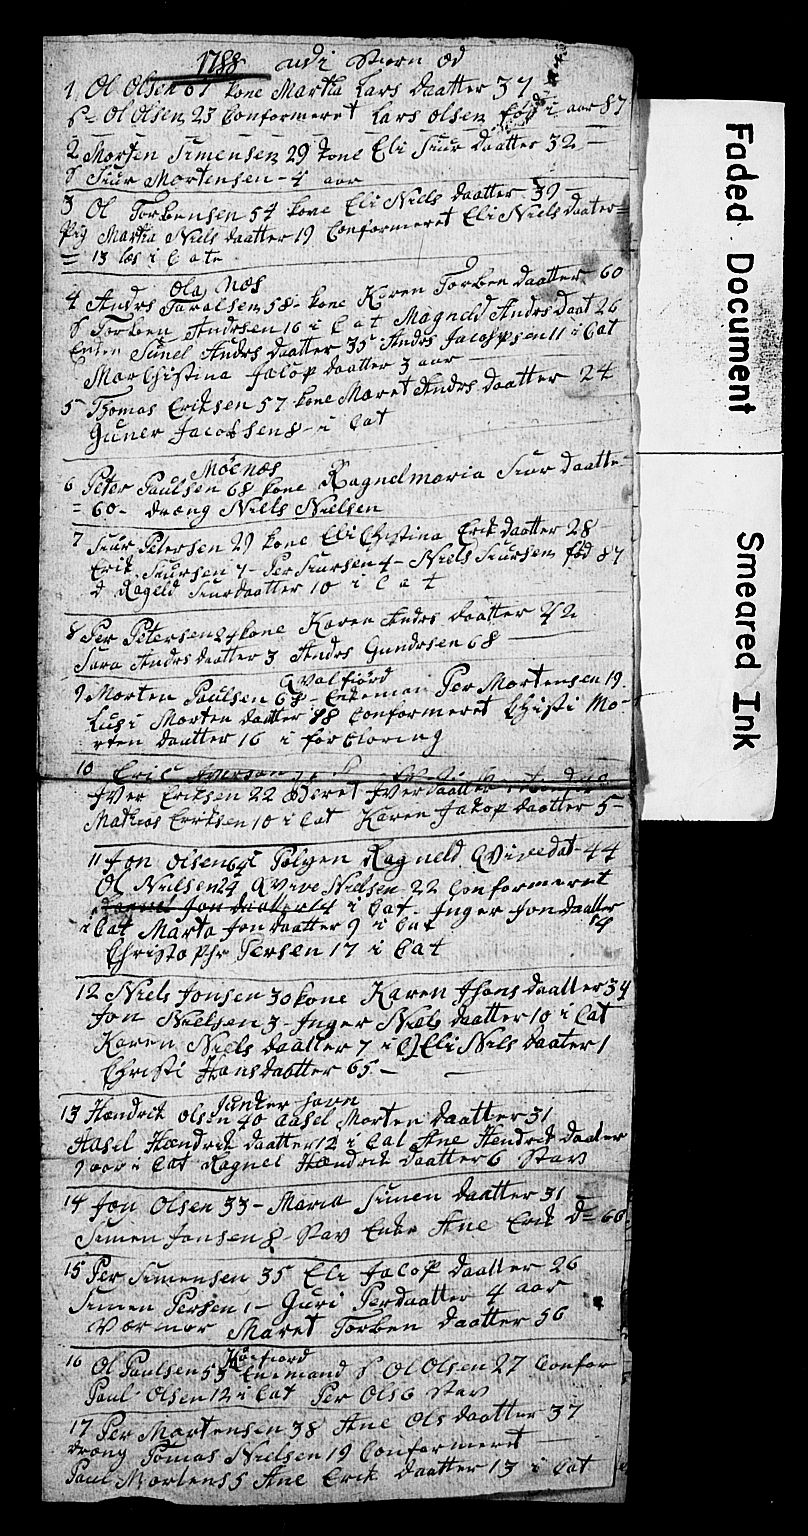 1788 udi Stiern ød
1 Ol Olsen 67 kone Martha Lars daatter 37
S= Ol Olsen 23 Conformeret Lars Olsen föd i aar 87
2 Morten Simensen 29 kone Eli Siur daatter 32 —
S Siur Mortensen - 4 aar
3 Ol Torbensen 54 kone Eli Niels daatter 39 —
Pig Martha Niels daatter 19 Conformeret Eli Niels daater=
= 13 læs i Cate
Ola Næs
4 Andrs Taralsen 58 - kone Karen Torben daatter 60
S Torben Andrsen 16 i Cat Magneld Andrs daat 26
Enken Sunel Andrs daatter 35 Andrs Jacobsen 11 i Cat
Mar Chistina Jacop daatter 3 aar
5 Thomas Eriksen 57 kone Maret Andrs daatter 24
Guner Jacobsen 8 - i Cat
Möenæs
6 Peter Paulsen 68 kone Ragnelmaria Siur daatte
= 60 - dræng Niels Nielsen
7 Siur Petersen 29 kone Eli Christina Erik daatter 28
Erik Siursen 7 - Per Siursen 4 - Niels Siursen föd 87
d Rageld Siurdaatter 10 i Cat
8 Per Petersen 24 kone Karen Andrs daatter 42
Sara Andrs daatter 3 Andrs Gundrsen 68
Qvalfiord
9 Morten Paulsen 68 - Enkeman Per Mortensen 19
Lusi Morten daatter 18 Conformeret Chisti Mo-
rten daatter 16 i forkloring
10 Eric Iverson
Iver Eriksen 22 Beret Iver daatter
Mathias Erriksen 10 i Cat Karen Jakop daatter 5 -
11 Jon Olsen 64 i Fölgen Ragneld Qvivedat 44
Ol Nielsen 24 Qvive Nielsen 22 Conformeret
Jon daatter 14 i Cat - Inger Jon daatter
14
i Cat Marta Jon daatter 9 i Cat
Christophr Persen 17 i Cat
12 Niels Jonsen 30 kone Karen Jhans daatter 34
Jon Nielsen 3 - Inger Niels daatter 10 i Cat
Karen Niels daatter 7 i C Eli Niels daater 1
Christi Hans daatter 65 —
Junker havn
13 Hændrik Olsen 40 Aasel Morten daatter 31
Aasel Hændrik daatter 12 i Cat Ane Hendrik daater
9 aar i Cat Ragnel Hændrik daatter 6 Stav
14 Jon Olsen 33 - Maria Simen daatter 31
Simen Jonsen 8 - Stav Enke Ane Erik d= 66
15 Per Simensen 35 Eli Jacop daatter 26
Simen Persen 1 - Guri Perdaatter 4 aar
Værmor Maret Torben daatter 56
Kaafiord
16 Ol Paulsen 55 Enkemand S Ol Olsen 27 Confor
Paul Olsen 12 i Cat Per Ols 6 Stav
17 Per Mortensen 38 Ane Ols daatter 37
dræng Tomas Nielsen 19 Conformeret
Paul Mortens 5 Ane Erik daatter 13 i Cat
Faded Document
Smeared Ink